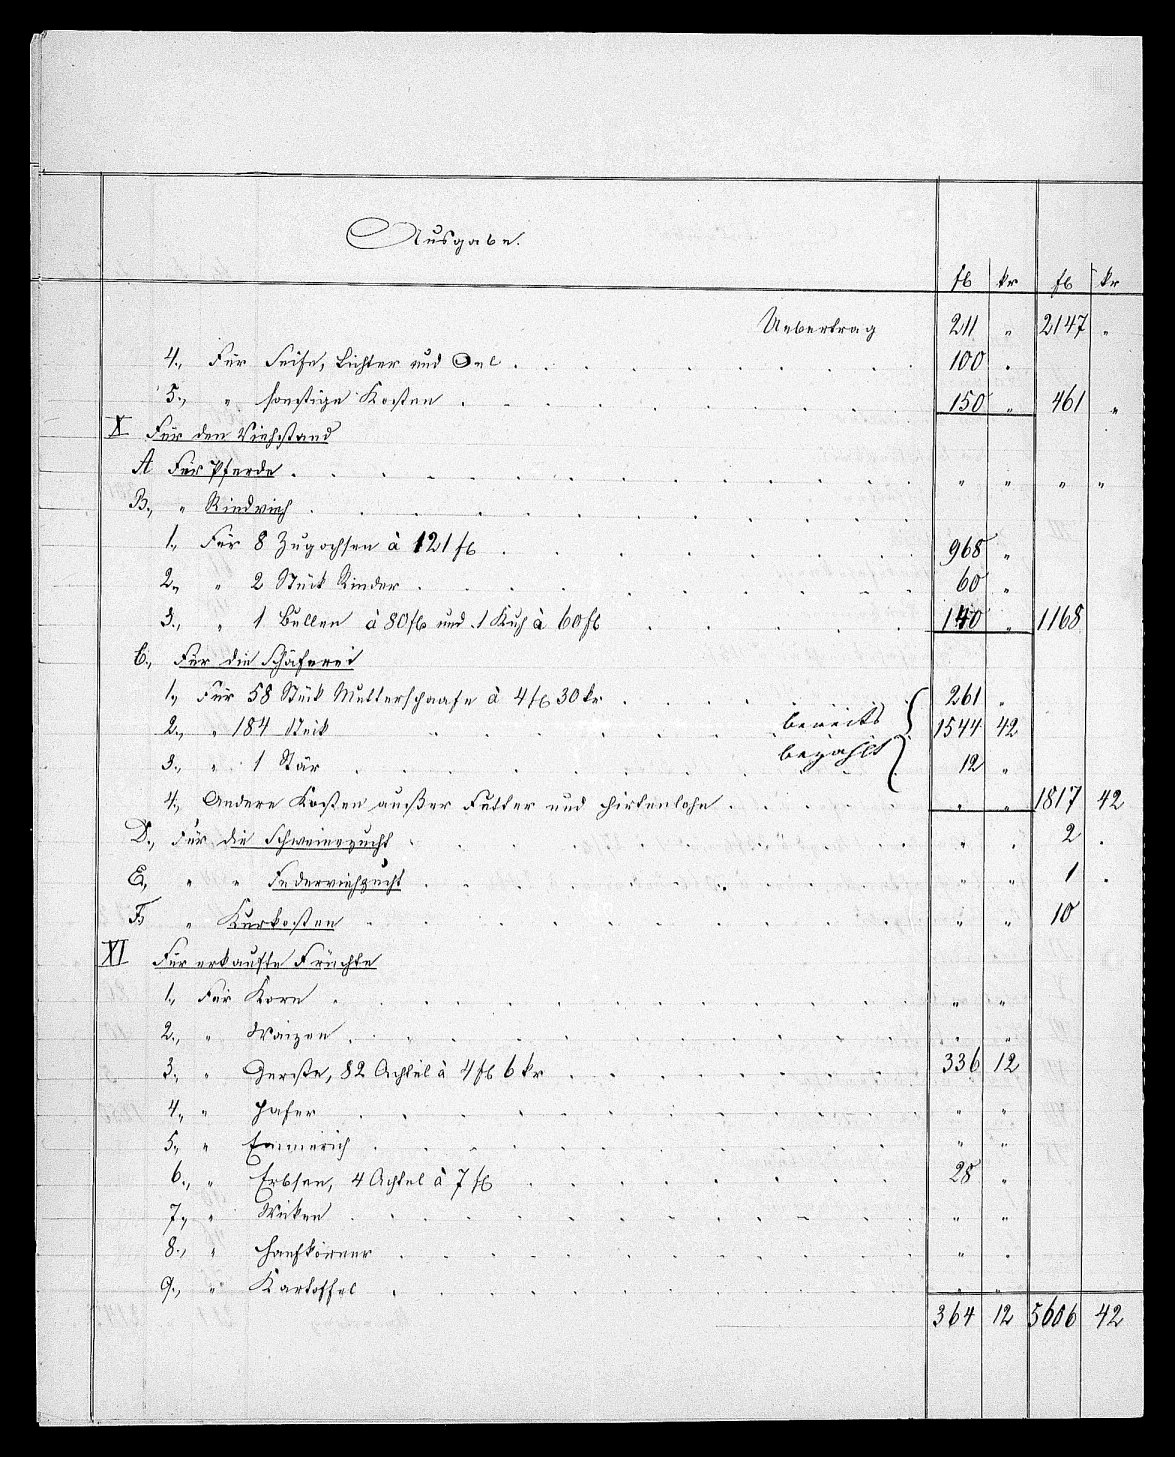 Ausgabe.
fl kr fl kr
Uebertrag 211 " 2147 "
4., Für Seife, Lichter und Oel . . . 100 "
5., " sonstige Kosten . . . 150 " 461 "
X Für den Viehstand
A Für Pferde . . . " " " "
B., " Rindvieh . . .
1., Für 8 Zugochsen à 121 fl . . . 968 "
2., " 2 Stück Rinder . . . 60 "
3., " 1 Bullen à 80 fl und 1 Kuh à 60 fl . . . 140 " 1168
C., Für die Schäferei
1., Für 58 Stük Mutterschaafe à 4 fl 30 kr . . . 261 "
2., " 184 Stük . . . bereits 1544 42
3., " 1 Stär . . . bezahlt 12 "
4., Andere Kosten außer Futter und Hirtenlohn . . . " " 1817 42
D., Für die Schweinezucht . . . " " 2 .
E., " " Federviehzucht . . . " " 1 .
F., " Kurkosten . . . " " 10
XI Für erkaufte Früchte
1., Für Korn . . . " "
2., " Waizen . . . " "
3., " Gerste, 82 Achtel à 4 fl 6 kr . . . 336 12
4., " Hafer . . . " "
5., " Emmerich . . . " "
6., " Erbsen, 4 Achtel à 7 fl . . . 28 "
7., " Wicken . . . " "
8., " Hanfkörner . . . " "
9., " Kartoffel . . . " "
364 12 5606 42